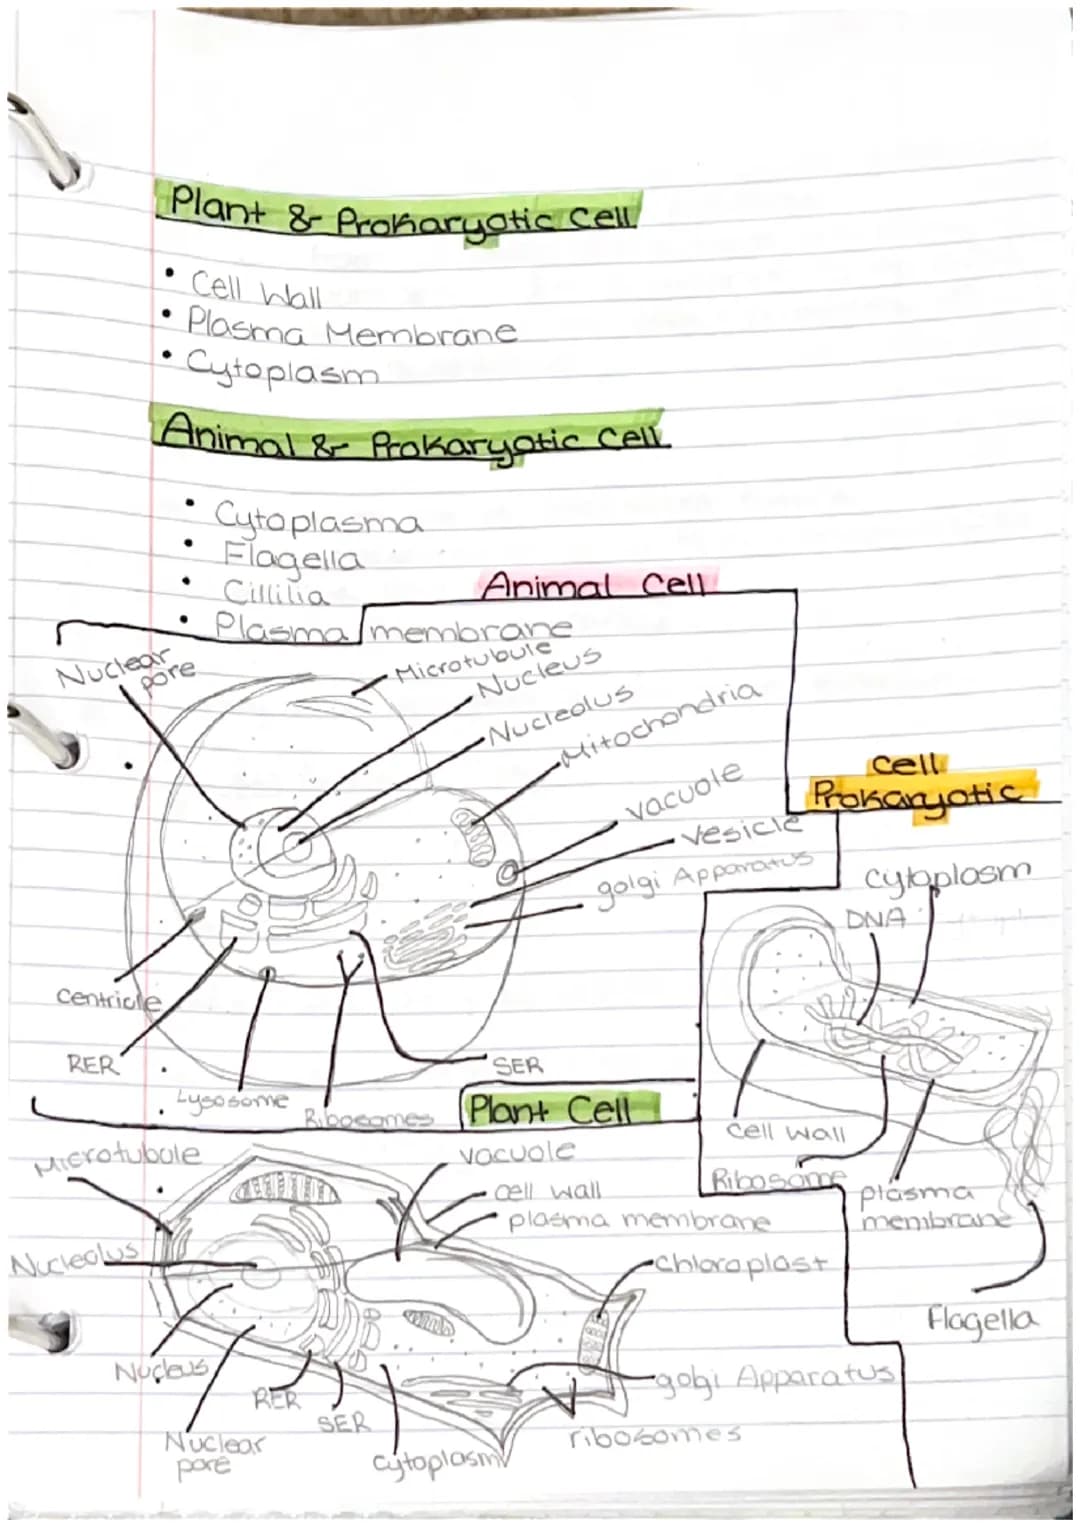 Plant & Prokaryotic Cell
• Cell Wall
• Plasma Membrane
• Cytoplasm
Animal & Prokaryotic Cell
• Cytoplasma
• Flagella
• Cillilia
• Plasma membrane
Animal Cell
Nuclear
pore
Microtubule
Nucleus
Nucleolus
Mitochondria
vacuole
vesicle
golgi Apparatus
Centriole
RER
Lysosome
Ribosomes
SER
Cell
Prokaryotic
Cytoplasm
DNA
Cell Wall
Ribosome
plasma
membrane
Flagella
Plant Cell
Microtubule
vacuole
cell wall
plasma membrane
Nucleolus
Chloroplast
Nucleus
RER
SER
golgi Apparatus
ribosomes
Nuclear
pore
Cytoplasm